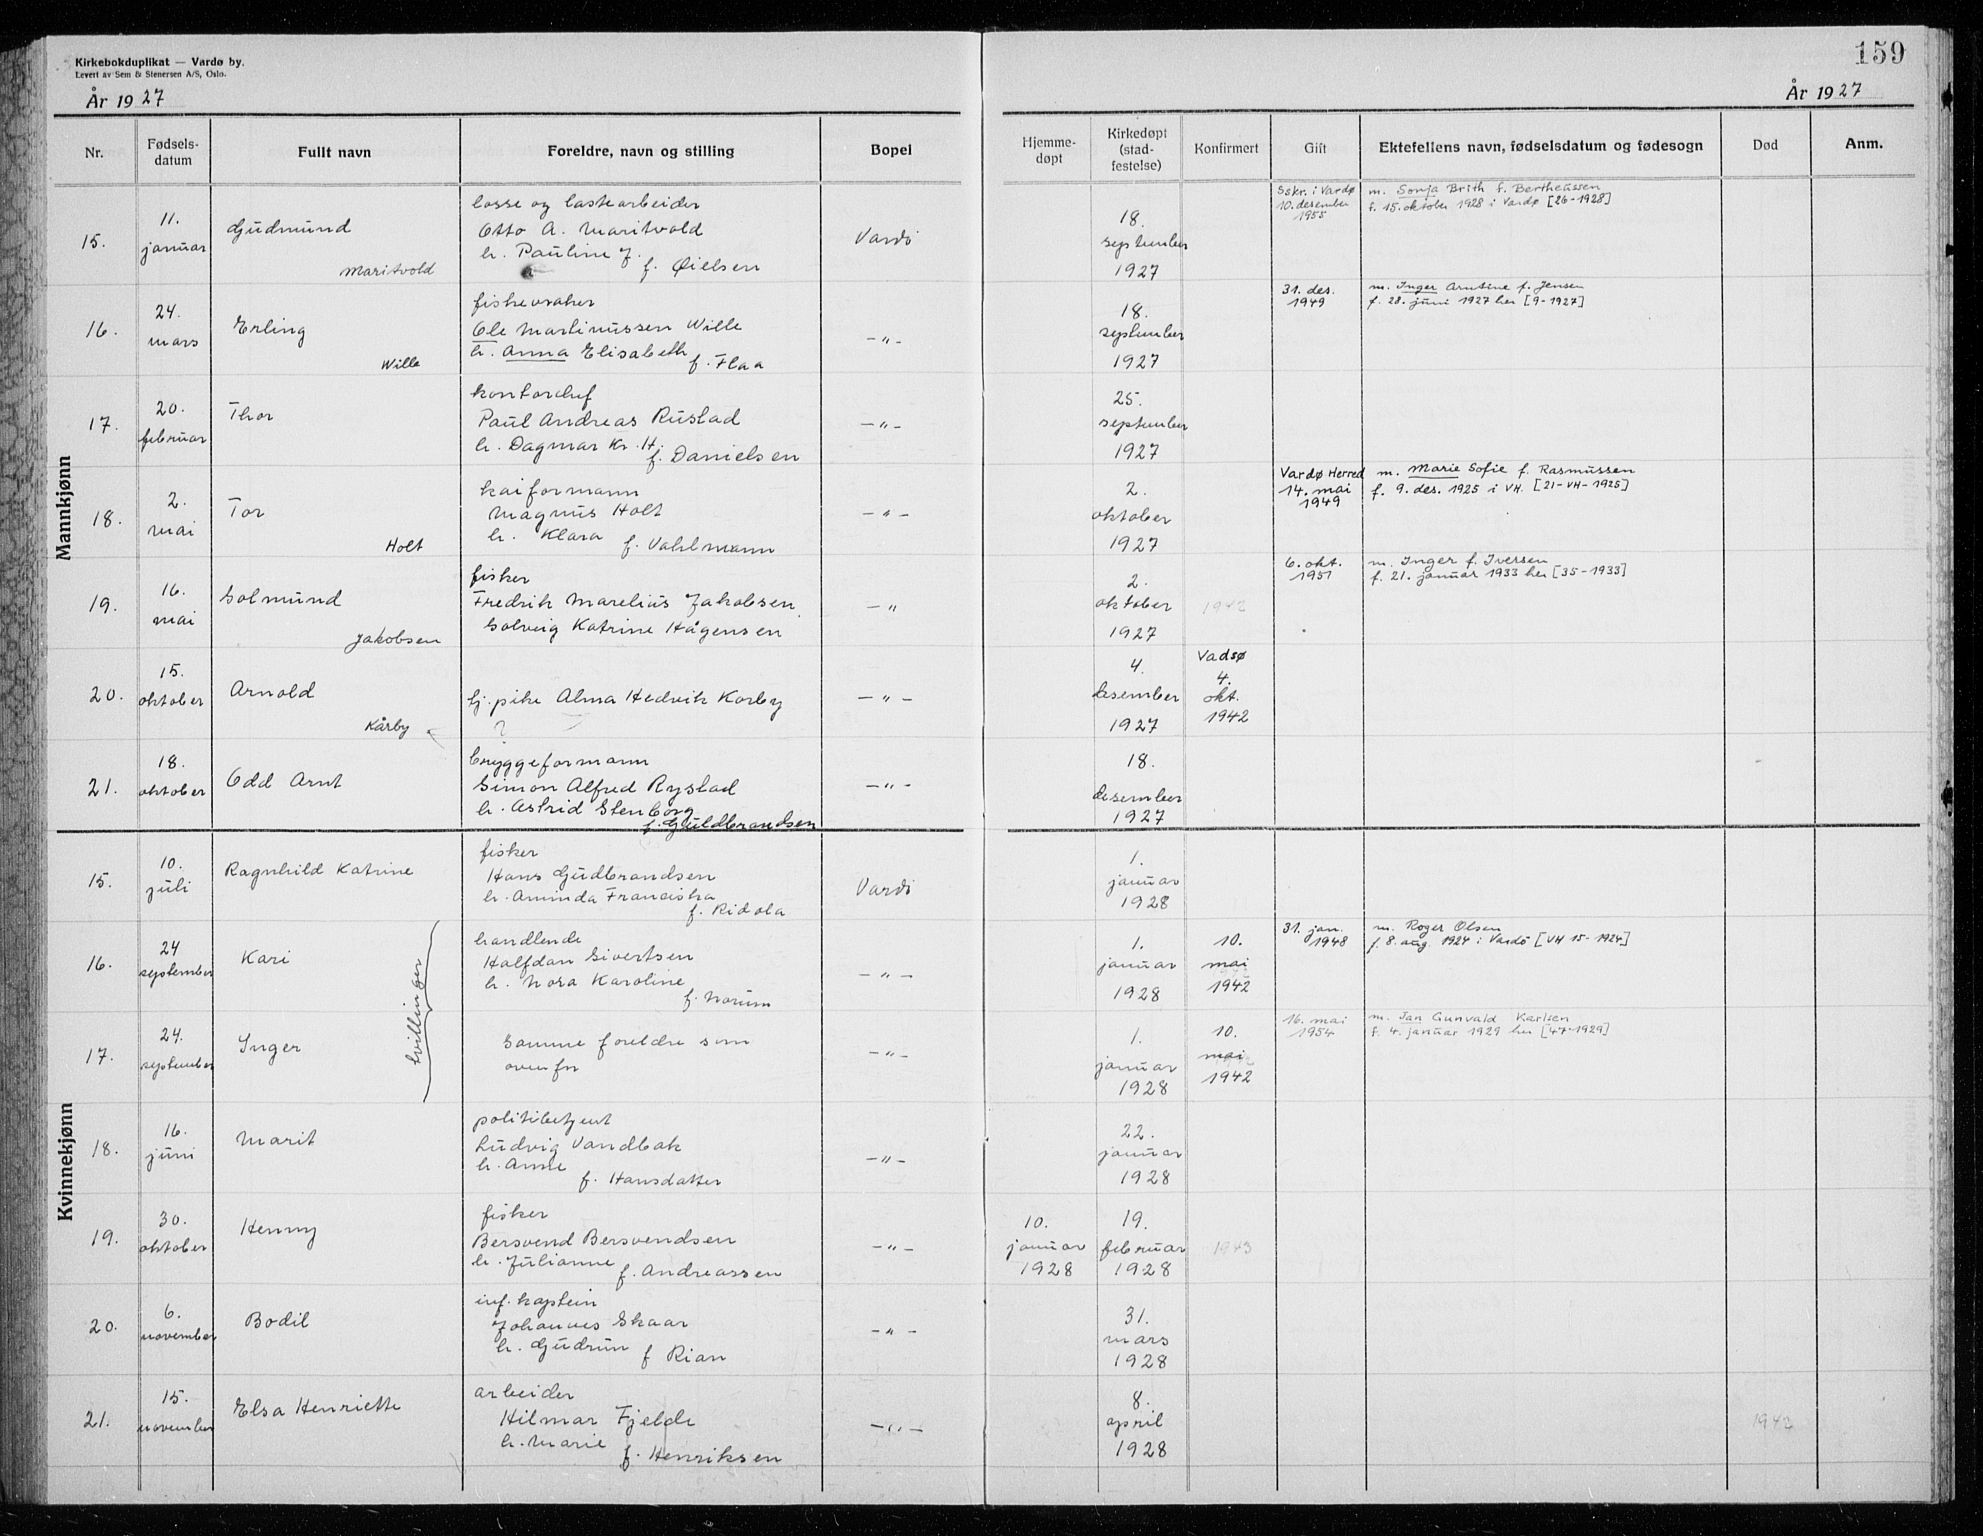 Kirkebokduplikat — Vardø by.
Levert av Sem & Stenersen A/S, Oslo.
159
År 1927
År 1927
Nr.
Fødsels-
datum
Fullt navn
Foreldre, navn og stilling
Bopel
Hjemme-
døpt
Kirkedøpt
(stad-
festelse)
Konfirmert
Gift
Ektefellens navn, fødselsdatum og fødesogn
Død
Anm.
Mannkjønn
15.
11.
januar
Gudmund
Maritvold
losse og lastearbeider
Otto A. Maritvold
h. Pauline J.
f. Øielsen
Vardö
18.
september
1927
Sskr. i Vardø
10. desember
1955
m. Sonja Brith f. Bertheussen
f. 15. oktober 1928 i Vardø [26-1928]
16.
24.
mars
Erling
Wille
fiskevraker
Ole Martinussen Wille
h. Anna Elisabeth
f. Flaa
—"—
18.
september
1927
31. des.
1949
m. Inger Arntine f. Jensen
f. 28. juni 1927 her [9-1927]
17.
20.
februar
Thor
kontorchef
Paul Andreas Rustad
h. Dagmar Kr. H.
f. Danielsen
—"—
25.
september
1927
18.
2.
mai
Tor
Holt
kaiformann
Magnus Holt
h. Klara
f. Vahlmann
—"—
2.
oktober
1927
Vardø Herred
14. mai
1949
m. Marie Sofie f. Rasmussen
f. 9. des. 1925 i VH. [21-VH-1925]
19.
16.
mai
Solmund
Jakobsen
fisker
Fredrik Marelius Jakobsen
Solveig Katrine Hågensen
—"
2.
oktober
1927
1942
6. okt.
1951
m. Inger f. Iversen
f. 21. januar 1933 her [35-1933]
20.
15.
oktober
Arnold
Kårby
tj. pike Alma Hedvik Korby
?
—"—
4.
desember
1927
Vadsø
4.
okt.
1942
21.
18.
oktober
Odd Arnt
bryggeformann
Simon Alfred Rystad
h. Astrid Stenborg
f. Guldbrandsen
—"—
18.
desember
1927
Kvinnekjønn
15.
10.
juli
Ragnhild Katrine
fisker
Hans Gudbrandsen
h. Aminda Franciska
f. Ridola
Vardö
1.
januar
1928
16.
24
september
Kari
tvillinger
handlende
Halfdan Sivertsen
h. Nora Karoline
f. Norum
—"—
1.
januar
1928
10.
mai
1942
31. jan.
1948
m. Roger Olsen
f. 8. aug. 1924 i Vardö [VH 15-1924]
17.
24.
september
Inger
Samme foreldre som
ovenfor
—"—
1.
januar
1928
10.
mai
1942
16. mai
1954
m. Jan Gunvald Karlsen
f. 4. januar 1929 her [47-1929]
18.
16.
juni
Marit
politibetjent
Ludvig Vandbak
h. Anne
f. Hansdatter
—"—
22.
januar
1928
19.
30.
oktober
Henny
fisker
Bersvend Bersvendsen
h. Julianne
f. Andreassen
—"—
10.
januar
1928
19.
februar
1928
1943
20.
6.
november
Bodil
inf. kaptein
Johannes Skaar
h. Gudrun
f Rian
—"—
31.
mars
1928
21.
15.
november
Elsa Henriette
arbeider
Hilmar Fjelde
h. Marie
f. Henriksen
—"—
8.
april
1928
1942